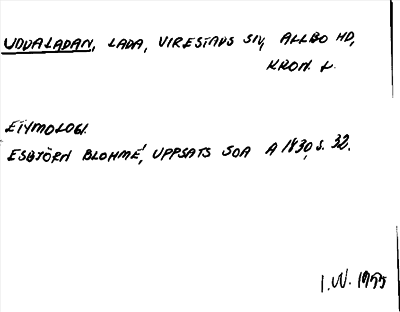 UDDALADAN, LADA, VIRESTADS SN, ALLBO HD,
KRON. L.
ETYMOLOGI.
ESBJÖRN BLOHMÉ, UPPSATS SOA A 1830, S. 32.
I.W. 1995